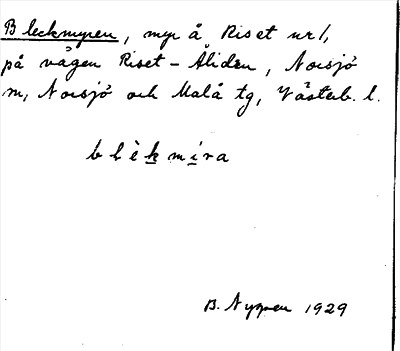 Bleckmyren, myr å Riset nr 1,
på vägen Riset - Åliden, Norsjö
m, Norsjö och Malå tg, Västerb. l.
blèkmíra
B. Nygren 1929